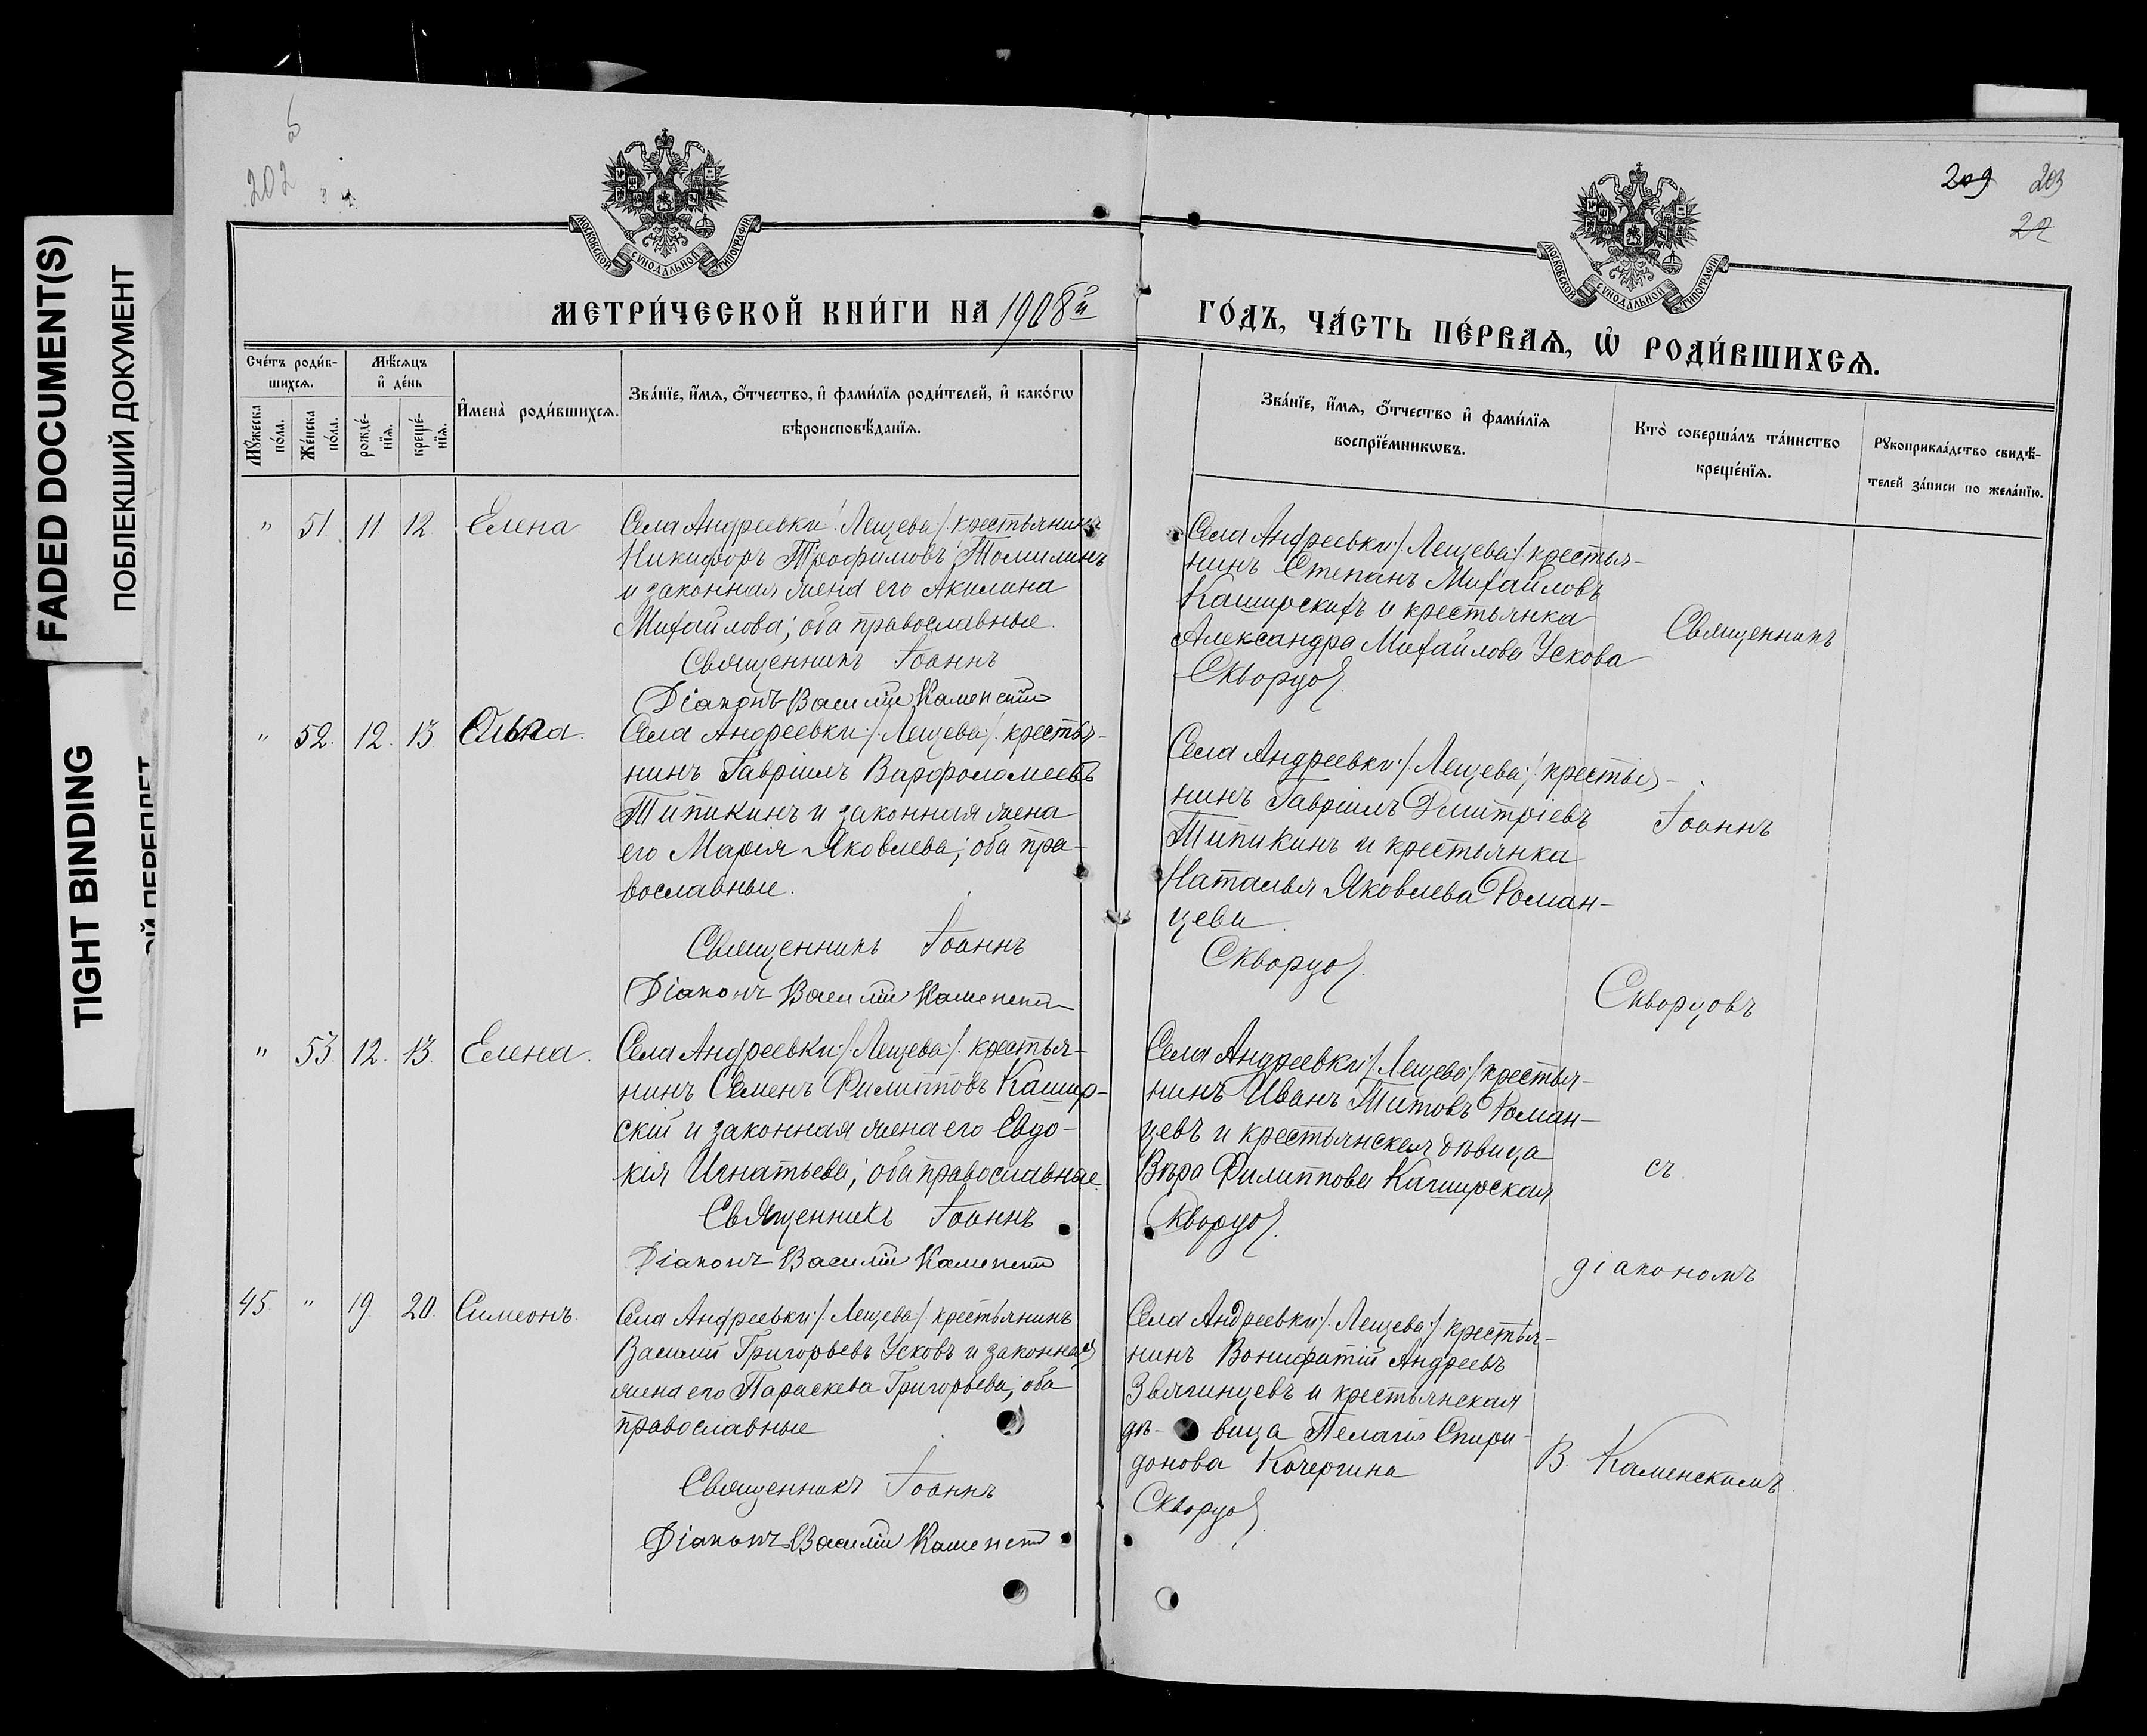 FADED DOCUMENT(S)
ПОБЛЕКШИЙ ДОКУМЕНТ
TIGHT BINDING
202
209 203
22
МОСКОВСКОЙ СѴНОДАЛЬНОЙ ТИПОГРАФІИ
МОСКОВСКОЙ СѴНОДАЛЬНОЙ ТИПОГРАФІИ
МЕТРИ́ЧЕСКОЙ КНИ́ГИ НА 1908й
ГО́ДЪ, ЧА́СТЬ ПЕ́РВАѦ, Ѡ҆ РОДИ́ВШИХСѦ.
Сче́тъ роди́в-
шихсѧ.
Мꙋ́жеска
по́ла.
Же́нска
по́ла.
Мѣ́сѧцъ
и҆ де́нь
рожде́-
нїѧ.
креще́-
нїѧ.
И҆мена̀ роди́вшихсѧ.
Зва́нїе, и҆́мѧ, ѻ҆́тчество, и҆ фами́лїѧ роди́телей, и҆ како́гѡ
вѣроисповѣ́данїѧ.
Зва́нїе, и҆́мѧ, ѻ҆́тчество и҆ фами́лїѧ
воспрїе́мникѡвъ.
Кто̀ соверша́лъ та́инство
креще́нїѧ.
Рꙋкоприкла́дство свидѣ́-
телей за́писи по жела́нїю.
" 51. 11. 12. Елена
Села Андреевки /:Лещева:/ крестьянинъ
Никифоръ Трофимовъ Томилинъ
и законная жена его Акилина
Михайлова; оба православные.
Священникъ Іоаннъ
Діаконъ Василій Каменскій
Села Андреевки /:Лещева:/ крестья-
нинъ Степанъ Михайловъ
Каширскихъ и крестьянка
Александра Михайлова Ускова
Скворцов
" 52. 12. 13. Ольга.
Села Андреевки /:Лещева:/ крестья-
нинъ Гавріилъ Варфоломеевъ
Типикинъ и законная жена
его Марія Яковлева; оба пра-
вославные.
Священникъ Іоаннъ
Діаконъ Василій Каменскій
Села Андреевки /:Лещева:/ крестья-
нинъ Гавріилъ Дмитріевъ
Типикинъ и крестьянка
Наталья Яковлева Роман-
цева
Скворцов
" 53. 12. 13. Елена.
Села Андреевки /:Лещева:/ крестья-
нинъ Семенъ Филипповъ Кашир-
скій и законная жена его Евдо-
кія Игнатьева; оба православные.
Священникъ Іоаннъ
Діаконъ Василій Каменскій
Села Андреевки /:Лещева:/ крестья-
нинъ Иванъ Титовъ Роман-
цевъ и крестьянская дѣвица
Вѣра Филиппова Каширская
Скворцов
45. " 19. 20. Симеонъ.
Села Андреевки /:Лещева:/ крестьянинъ
Василій Григорьевъ Усковъ и законная
жена его Параскева Григорьева; оба
православные
Священникъ Іоаннъ
Діаконъ Василій Каменскій
Села Андреевки /:Лещева:/ крестья-
нинъ Вонифатій Андреевъ
Звягинцевъ и крестьянская
дѣ- вица Пелагія Спири-
донова Кочергина
Скворцов
Священникъ
Іоаннъ
Скворцовъ
съ
діакономъ
В. Каменскимъ.